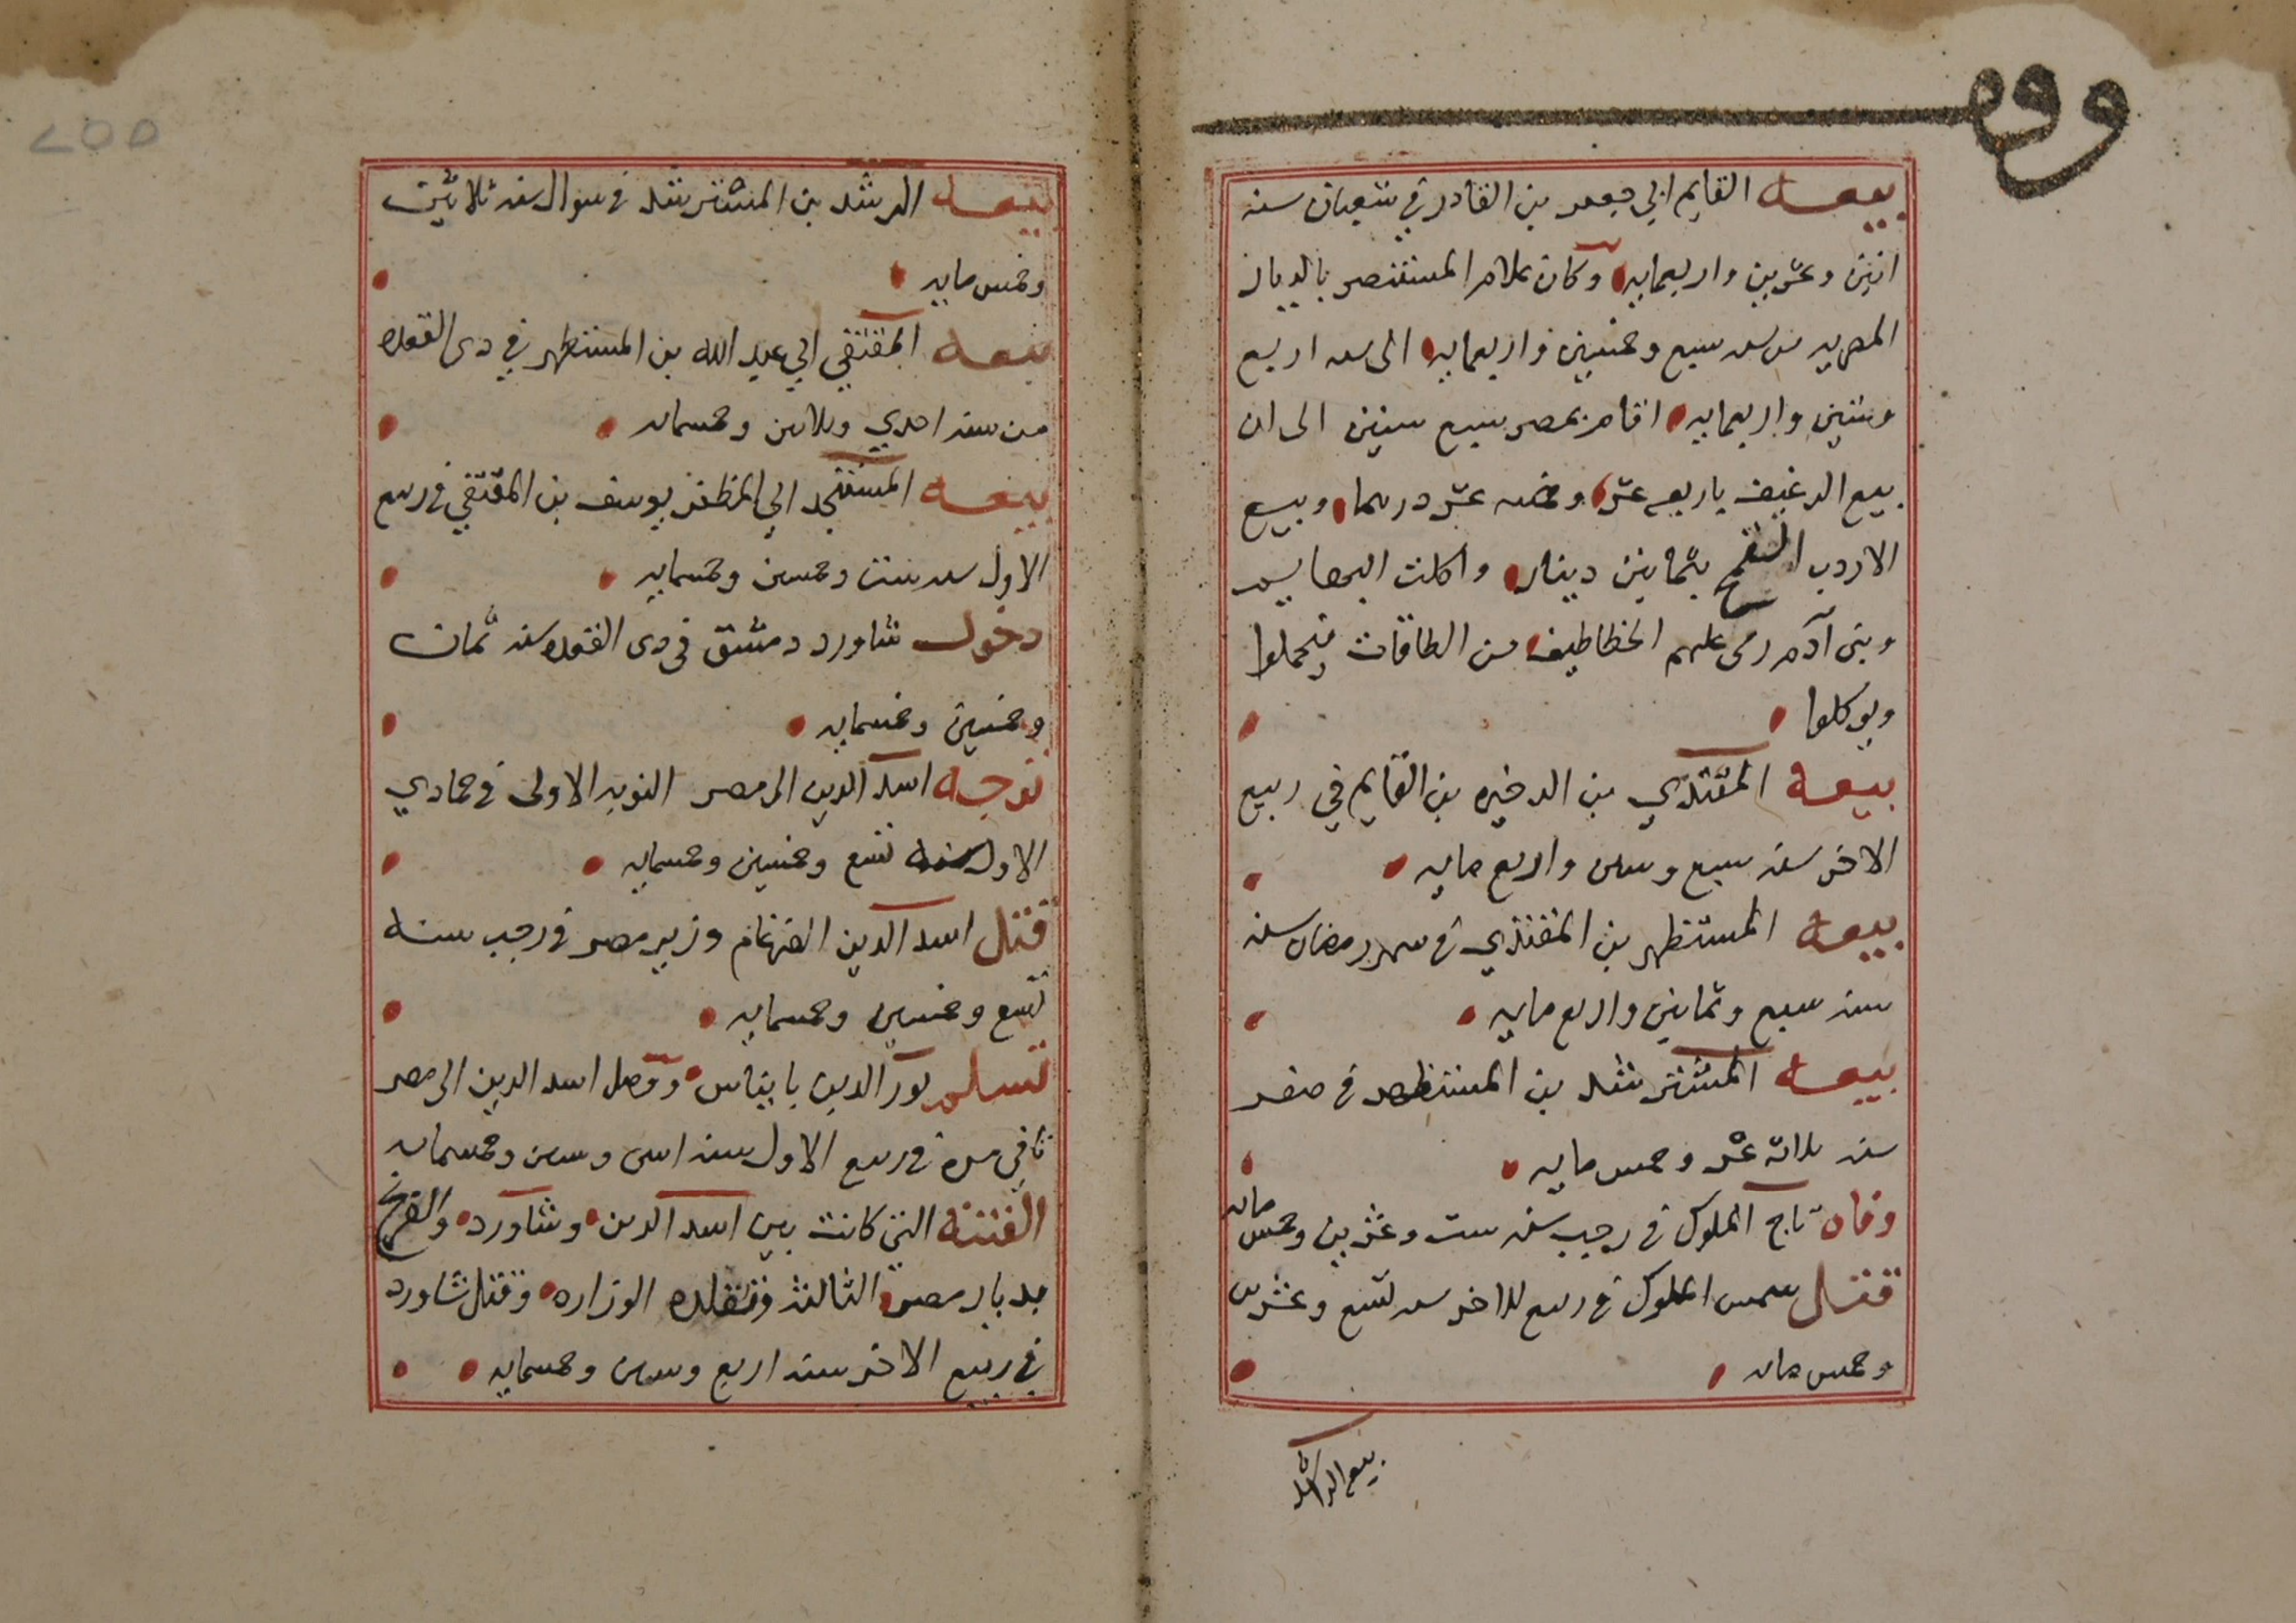 وقف
بيعه القايم ابي جعفر بن القادر في شعبان سنه
اثنين وعشرين واربعمايه وكان غلاء المستنصر بالديار
المصريه من سنه سبع وخمسين واربعمايه الى سنه اربع
وستين واربعمايه اقام بمصر سبع سنين الى ان
بيع الرغيف باربعه عشر وخمسه عشر درهما وبيع
الاردب القمح بثمانين دينار واكلت البهايم
وبنى آدم رمى عليهم الخطاطيف من الطاقات فيحملوا
ويوكلوا
بيعه المقتدي بن الدخيره بن القايم في ربيع
الاخر سنه سبع وستين واربع مايه
بيعه المستظهر بن المقتدي في شهر رمضان سنه
سنه سبع وثمانين واربع مايه
بيعه المسترشد بن المستظهر في صفر
سنه ثلاثه عشر وخمس مايه
وفاه تاج الملوك في رجب سنه ست وعشرين وخمس مايه
قتل شمس الملوك في ربيع الاخر سنه تسع وعشرين
وخمس مايه
بيعه الراشد
٢٥٥
بيعه الرشد بن المسترشد في شوال سنه ثلاثين
وخمس مايه
بيعه المقتفي ابي عبد الله بن المستظهر في دى القعده
من سنه احدي وثلاثين وخمسمايه
بيعه المستنجد ابي المظفر يوسف بن المقتفي في ربيع
الاول سنه ست وخمسين وخمسمايه
دخول شاورد دمشق في دى القعده سنه ثمان
وخمسين وخمسمايه
توجه اسد الدين الى مصر النوبه الاولى في جمادي
الاول سنه تسع وخمسين وخمسمايه
قتل اسد الدين الضرغام وزير مصر في رجب سنه
تسع وخمسين وخمسمايه
تسلم نور الدين بانياس ووصل اسد الدين الى مصر
ثاني مره في ربيع الاول سنه اثنين وستين وخمسمايه
الفتنه التى كانت بين اسد الدين وشاورد والفرنج
بديار مصر الثالثه وتقلده الوزاره وقتل شاورد
في ربيع الاخر سنه اربع وستين وخمسمايه